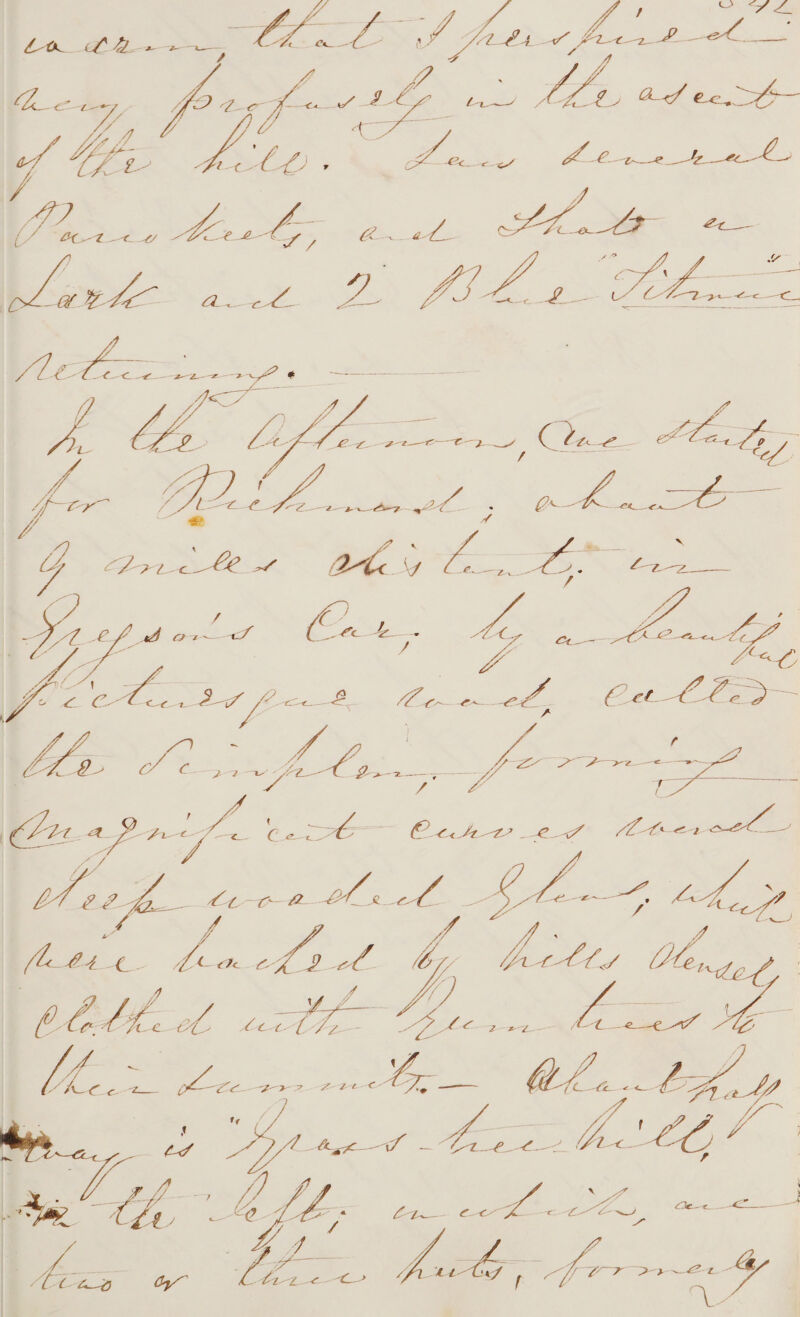 warm, that I perspired
very profusely in the ascent
of the hill. Saw several
Parrokeets, and Shot a
Lark and 2 Blue "Titmice"
returning. —
In the Afternoon, we started
for Richmond; about
9 miles distant; in
Gregson's Car; by a beautiful
picturesque road, called
the Simplon; forming
magnificent curves round
deep wooded Glens; which
were backed by hills densely
Clothed with Gum trees to
their summits. — About half
way is "Grass-tree hill,"
on the left; on which, are
two or three huts, formerly